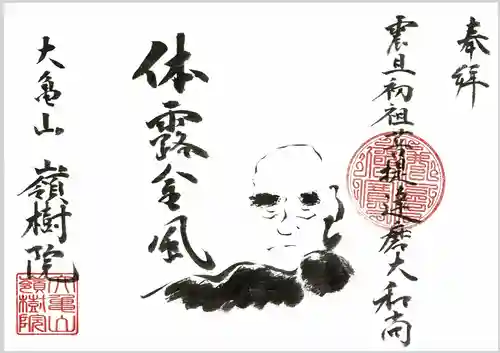 奉拜
震旦初祖菩提達磨大和尚
体露金風
大亀山 嶺樹院
大亀山
嶺樹院